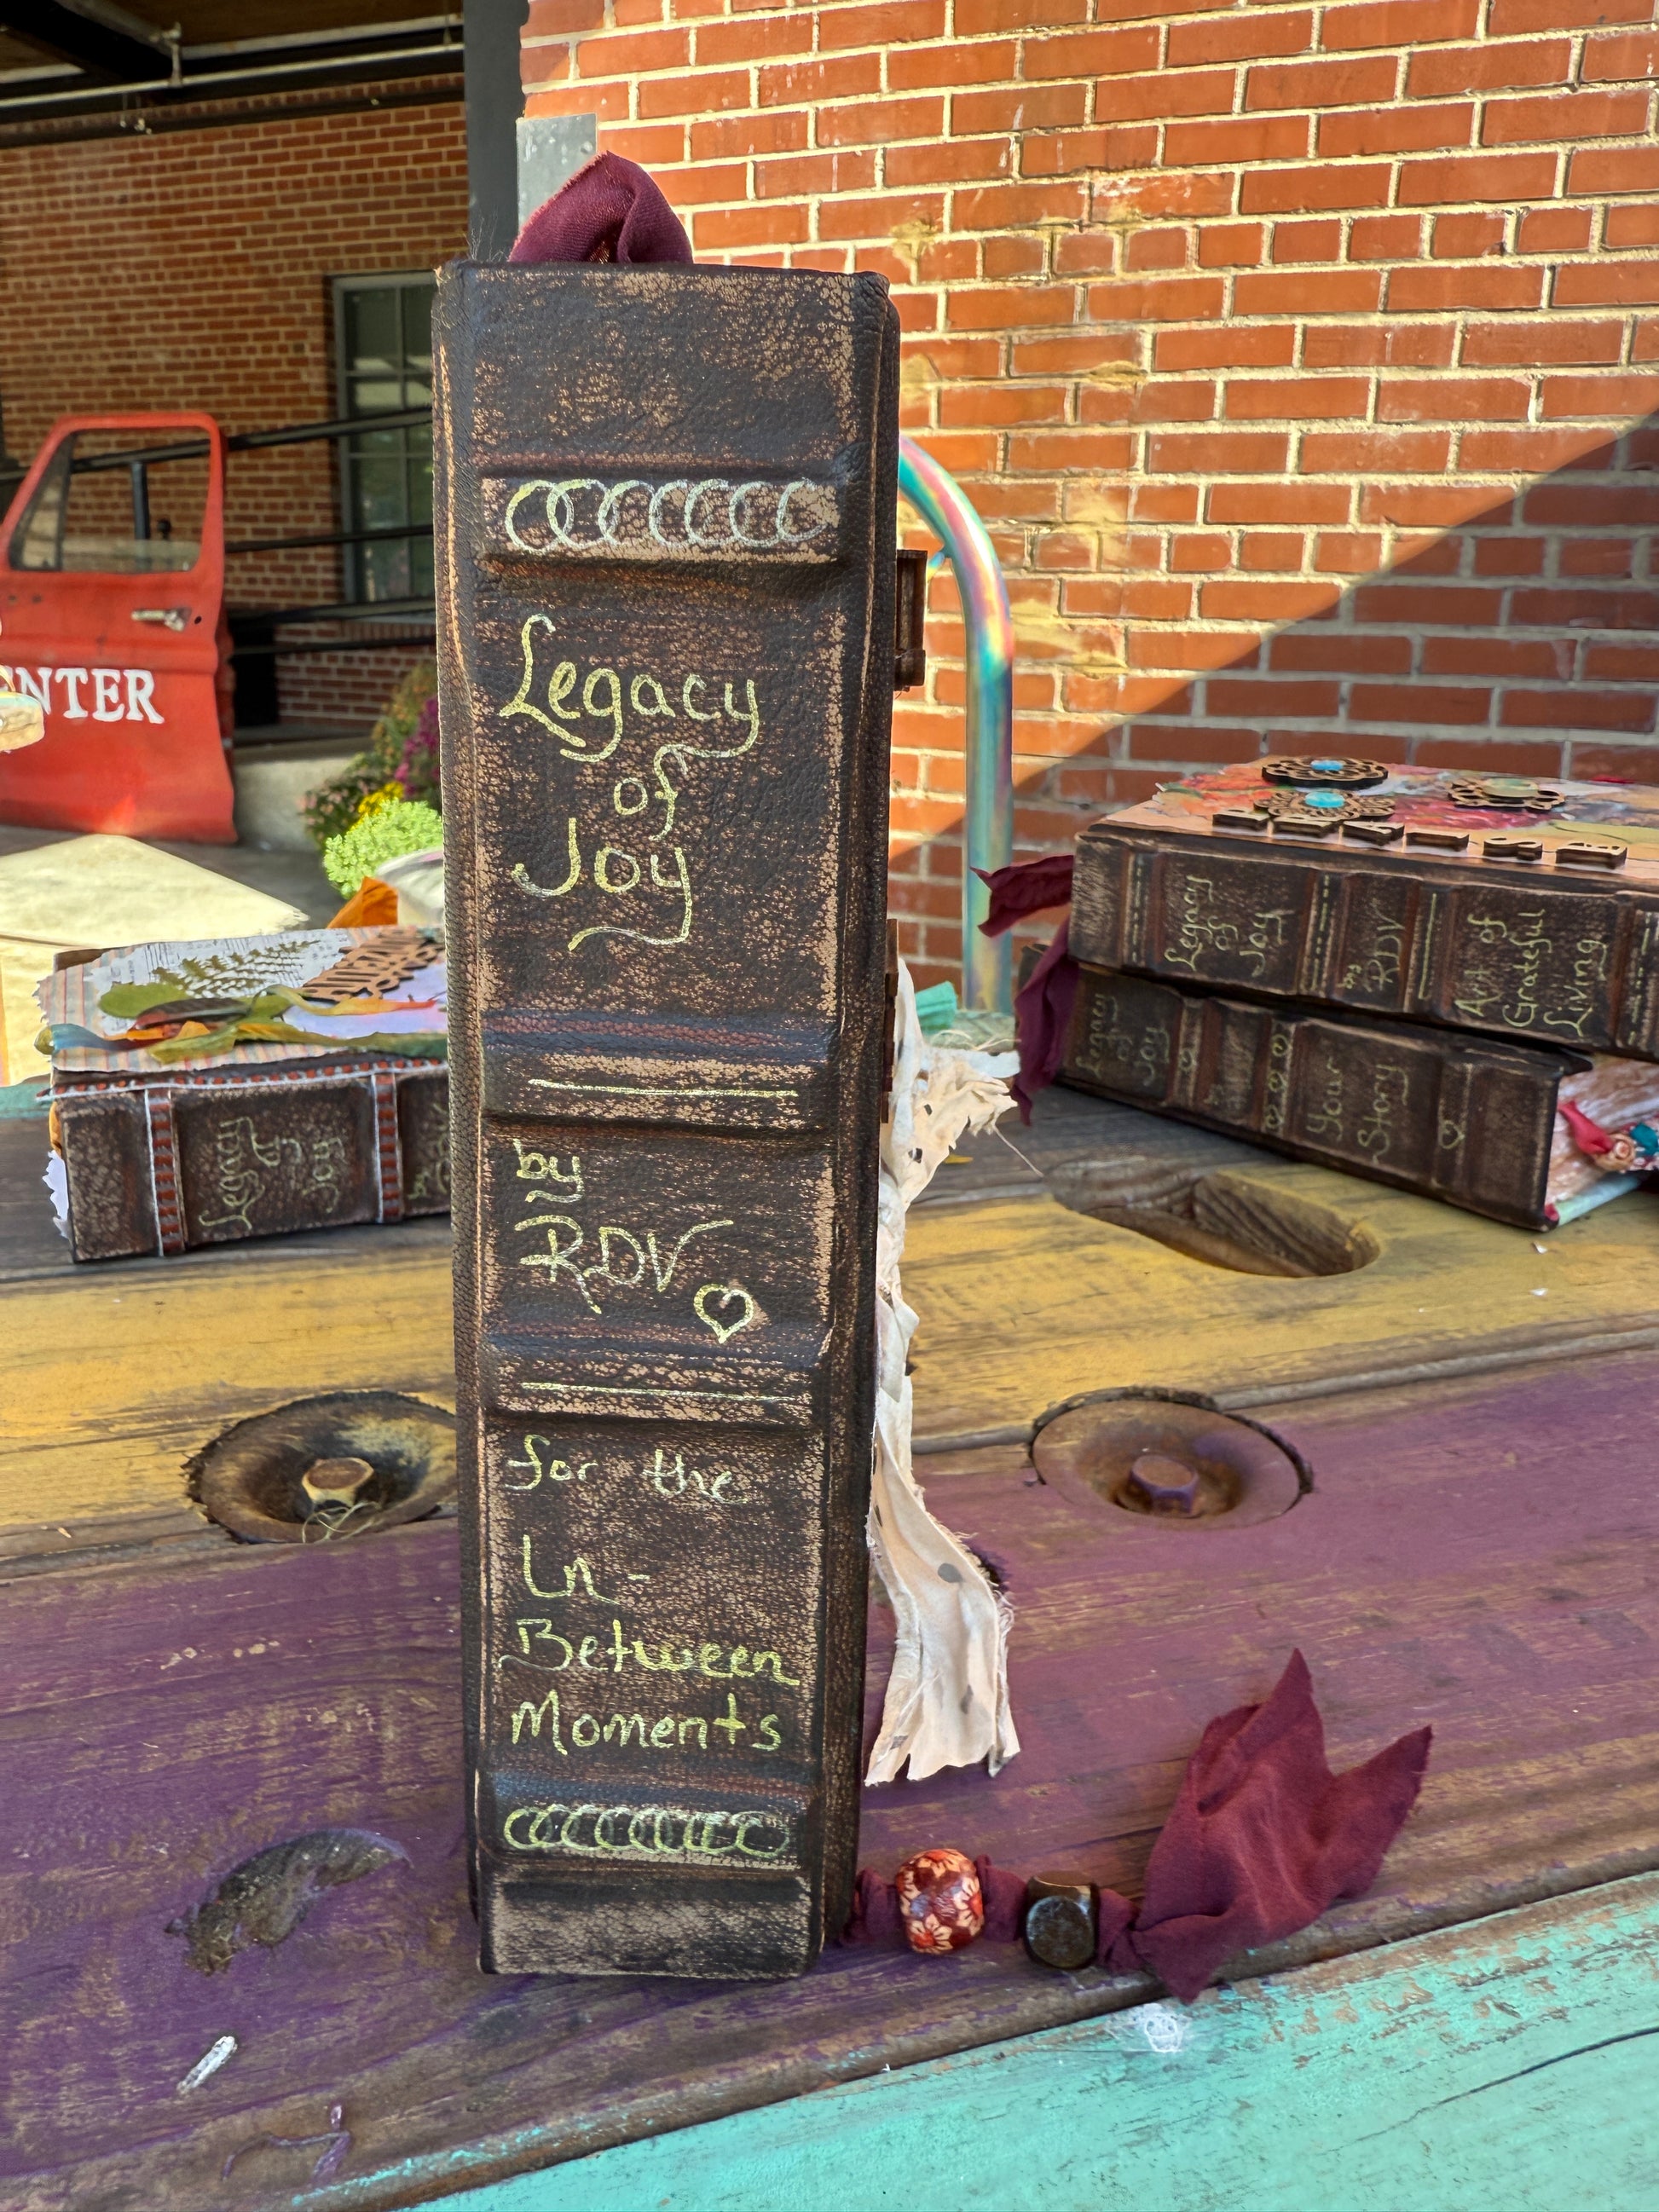 Legacy
of
Joy
by
RDV
for the
In-
Between
Moments
NTER
Legacy
of
Joy
by
PRAISE
Legacy
of
Joy
by
RDV
Art of
Grateful
Living
Legacy
of
Joy
Your
Story